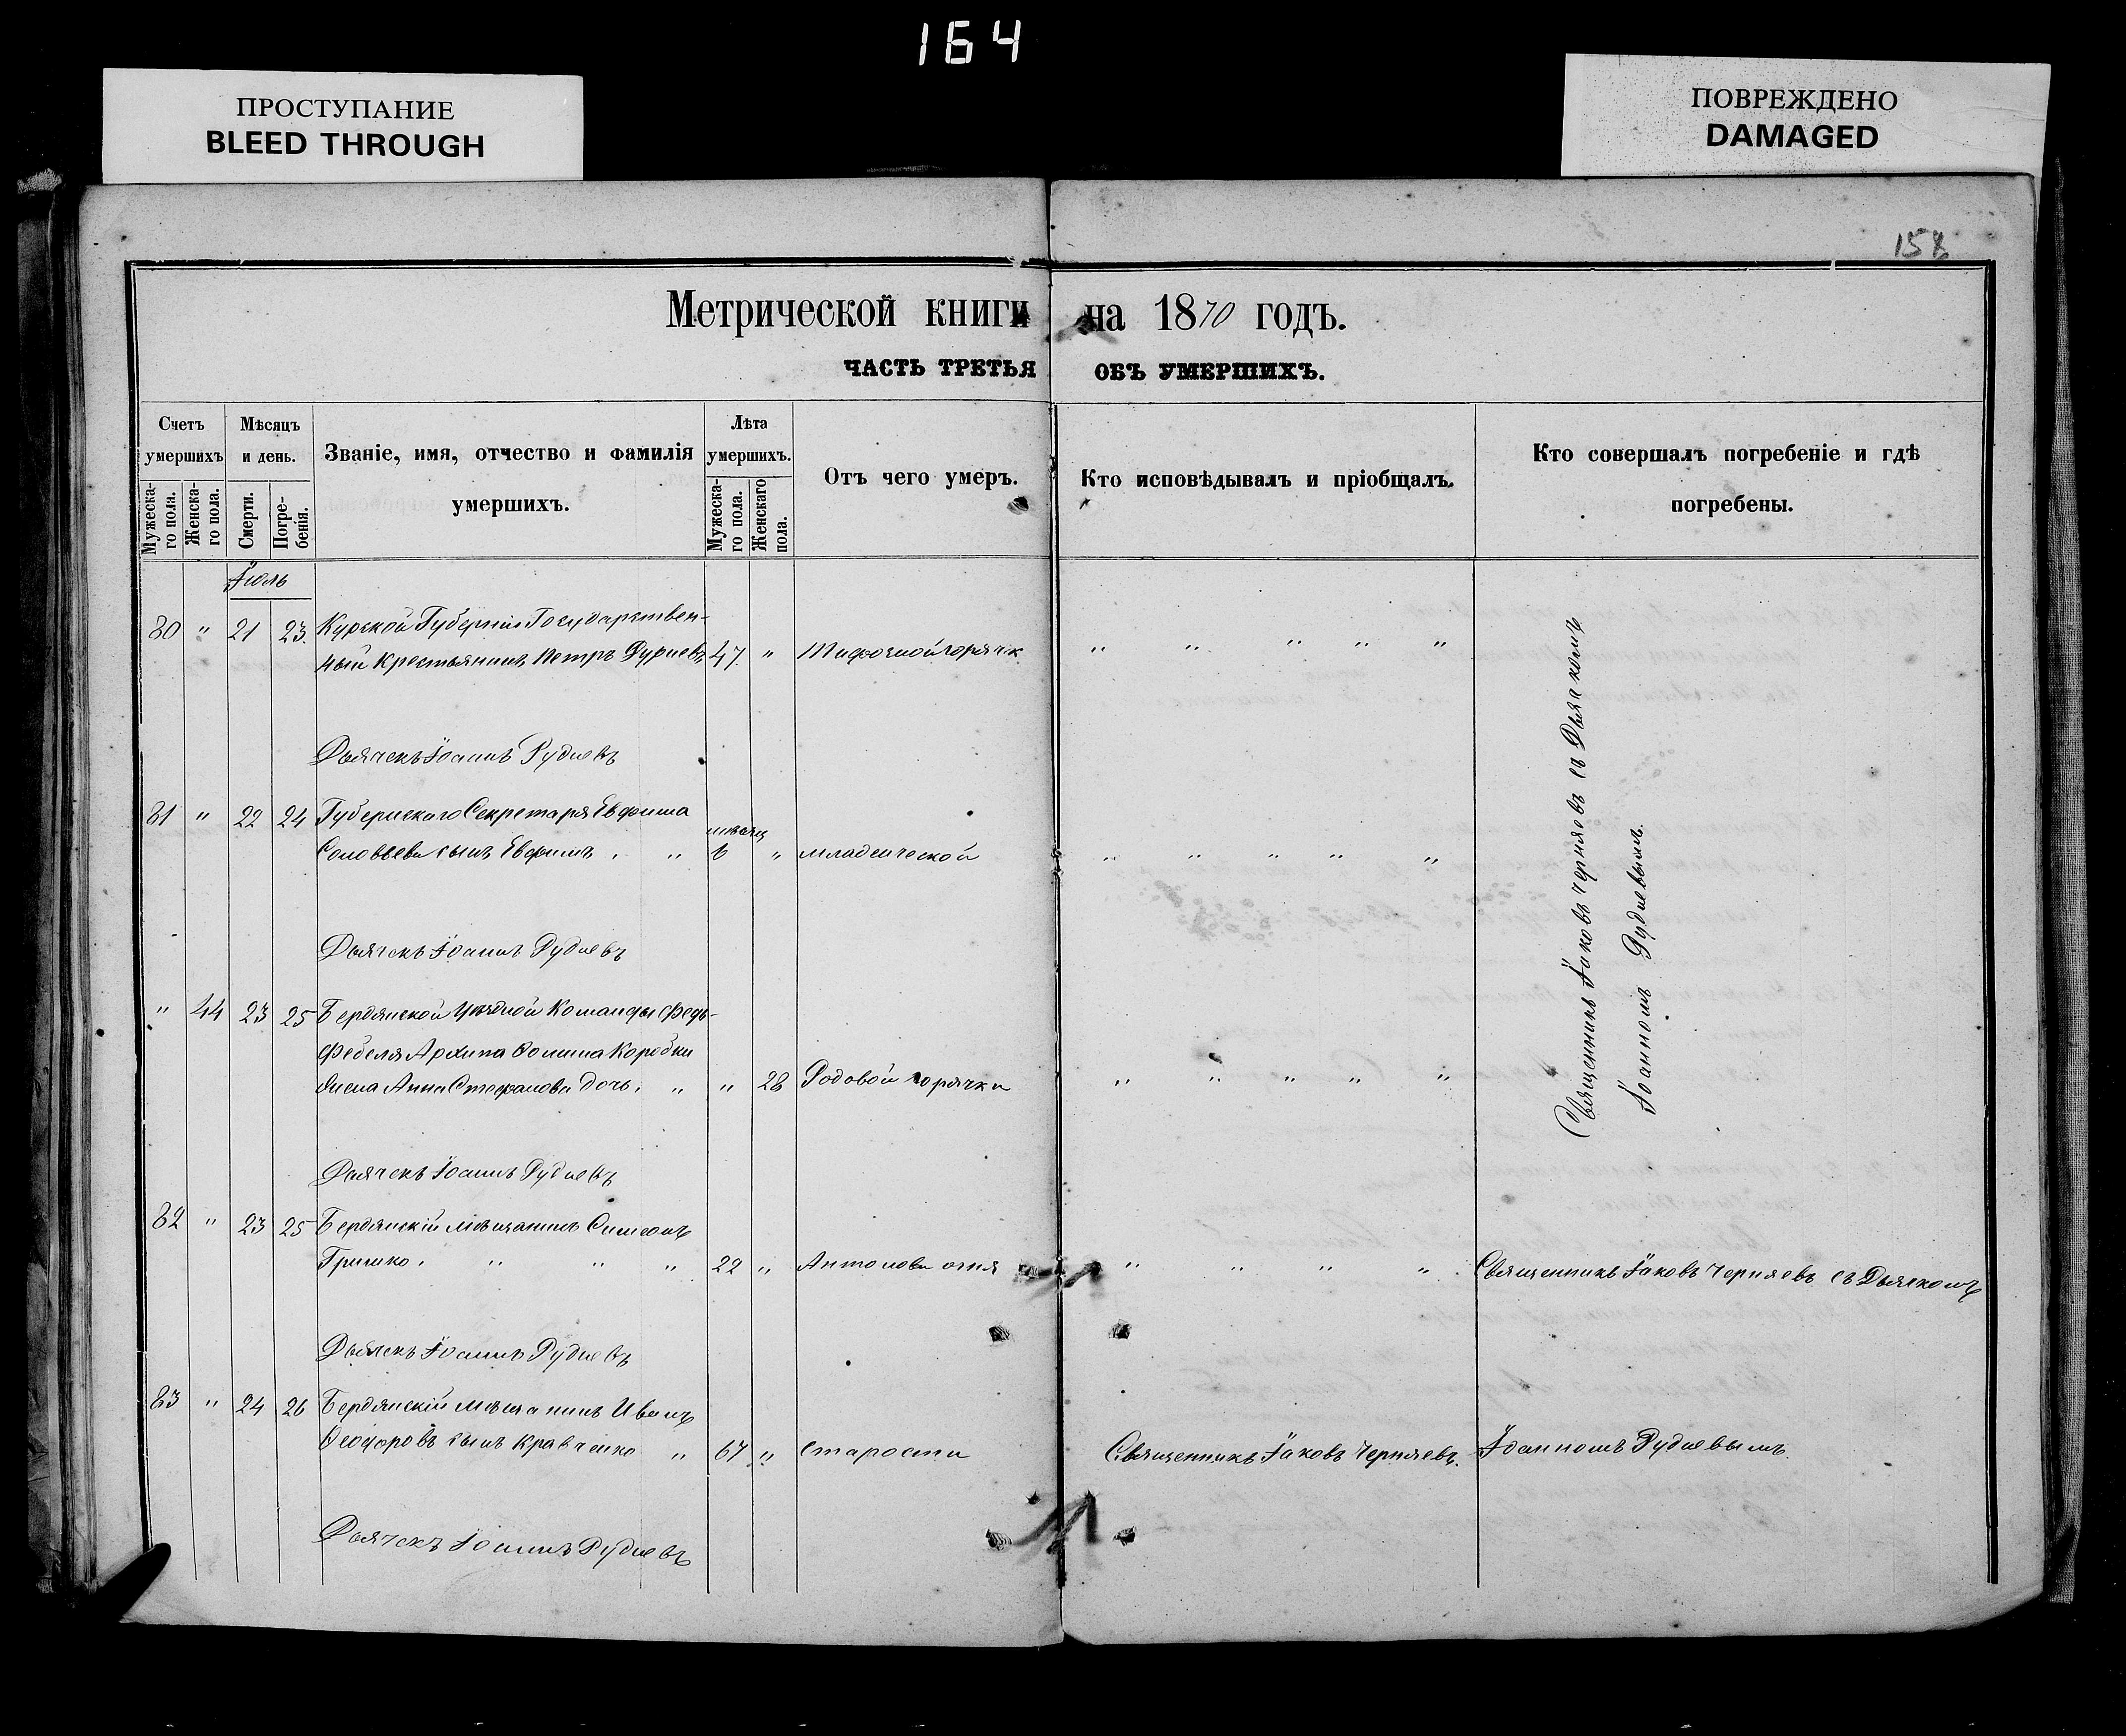 164
ПРОСТУПАНИЕ
BLEED THROUGH
ПОВРЕЖДЕНО
DAMAGED
158
Метрической книги на 1870 годъ.
ЧАСТЬ ТРЕТЬЯ ОБЪ УМЕРШИХЪ.
Счетъ умершихъ
Мѣсяцъ и день.
Званіе, имя, отчество и фамилія умершихъ.
Лѣта умершихъ.
Отъ чего умеръ.
Кто исповѣдывалъ и пріобщалъ.
Кто совершалъ погребеніе и гдѣ погребены.
Мужеска-го пола.
Женска-го пола.
Смерти.
Погре-бенія.
Мужеска-го пола.
Женскаго пола.
Іюль
80 " 21 23. Курской Губерніи Государствен-
ный Крестьянинъ Петръ 47. " Тифозной горячк
" " " " "
Дьячекъ Іоаннъ Рудневъ
81 " 22 24 Губернскаго Секретаря Евфима
мѣсяц
Соловьева сынъ Евфимъ . " 6 " младенческой
" " " " "
Дьячекъ Іоаннъ Рудневъ
" 44 23 25 Бердянской Уѣздной Команды Фельд-
фебеля Архипа Фомина Коробки
жена Анна Стефанова дочь. " " 28 Родовой горячки
" " " " "
Дьячекъ Іоаннъ Рудневъ
Священникъ Іаковъ Черняевъ съ Дьячкомъ
Іоанномъ Рудневымъ.
82 " 23 25 Бердянскій мѣщанинъ Симеонъ
Гришко . " " " 22 " Антонова огня
" " " "
Священникъ Іаковъ Черняевъ съ Дьячкомъ
Дьячекъ Іоаннъ Рудневъ
83 " 24 26 Бердянскій мѣщанинъ Иванъ
Ѳеодоровъ сынъ Кравченко " 67 " Старости
Священникъ Іаковъ Черняевъ.
Іоанномъ Рудневымъ.
Дьячекъ Іоаннъ Рудневъ